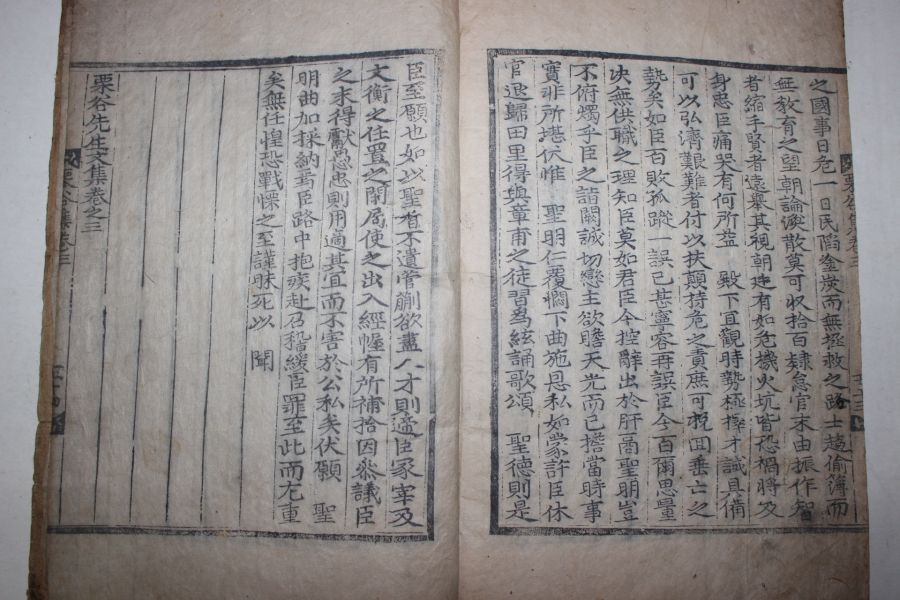 之國事日危一日民陷塗炭而無拯救之路士趨偷薄而
無敎育之望朝論渙散莫可収拾百隸怠官末由振作智
者縮手賢者遠擧其視朝廷有如危機火坑皆恐禍將及
身忠臣痛哭有何所益 殿下宜觀時勢極擇才識具備
可以弘濟艱難者付以扶顚持危之責庶可挽回垂亡之
勢矣如臣百敗孤蹤一誤已甚寧容再誤臣今百爾思量
决無供職之理知臣莫如君臣今控辭出於肝膈聖明豈
不俯燭乎臣之詣闕誠切戀主欲瞻天光而已擔當時事
實非所堪伏惟 聖明仁覆憫下曲施恩私如蒙許臣休
官退歸田里得與章甫之徒習爲絃誦歌頌 聖德則是
臣至願也如以聖旨不遺管蒯欲盡人才則遞臣冢宰及
文衡之任置之閑局使之出入經幄有所補拾因參議臣
之末得獻愚忠則用適其宜而不害於公私矣伏願 聖
明曲加採納焉臣路中抱疾赴召稽緩臣罪至此而尤重
矣無任惶恐戰慄之至謹昧死以 聞
栗谷先生文集卷之三
栗谷集卷三